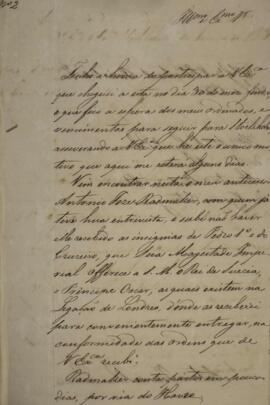 Nº 2
Illmo Exmo Sr.
Tenho a honra de participar a V. Exa
que cheguei a esta no dia 30 do mez findo,
e que fico a espera dos meus ordenados, e
vencimentos para seguir para Stockholm
asseverando a V. Exa que he este o unico mo-
tivo que aqui me retera alguns dias.
Vim encontrar nesta o meu antecessor
Antonio Jose Rademaker, com quem já
tive huma entrevista, e sube não haver
elle recebido as insignias de Pedro 1º e do
Cruzeiro, que Sua Magestade Impe-
rial offerece a S. M. o Rei da Suecia,
e Principe Oscar, as quaes existem na
Legação de Londres, donde as receberei
para convenientemente entregar, na
conformidade das ordens que de
V. Exa recebi.
Rademaker conta partir em poucos
dias, por via do Havre